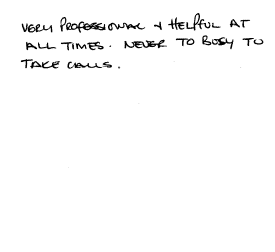 VERY PROFESSIONAL & HELPFUL AT
ALL TIMES. NEVER TO BUSY TO
TAKE CALLS.